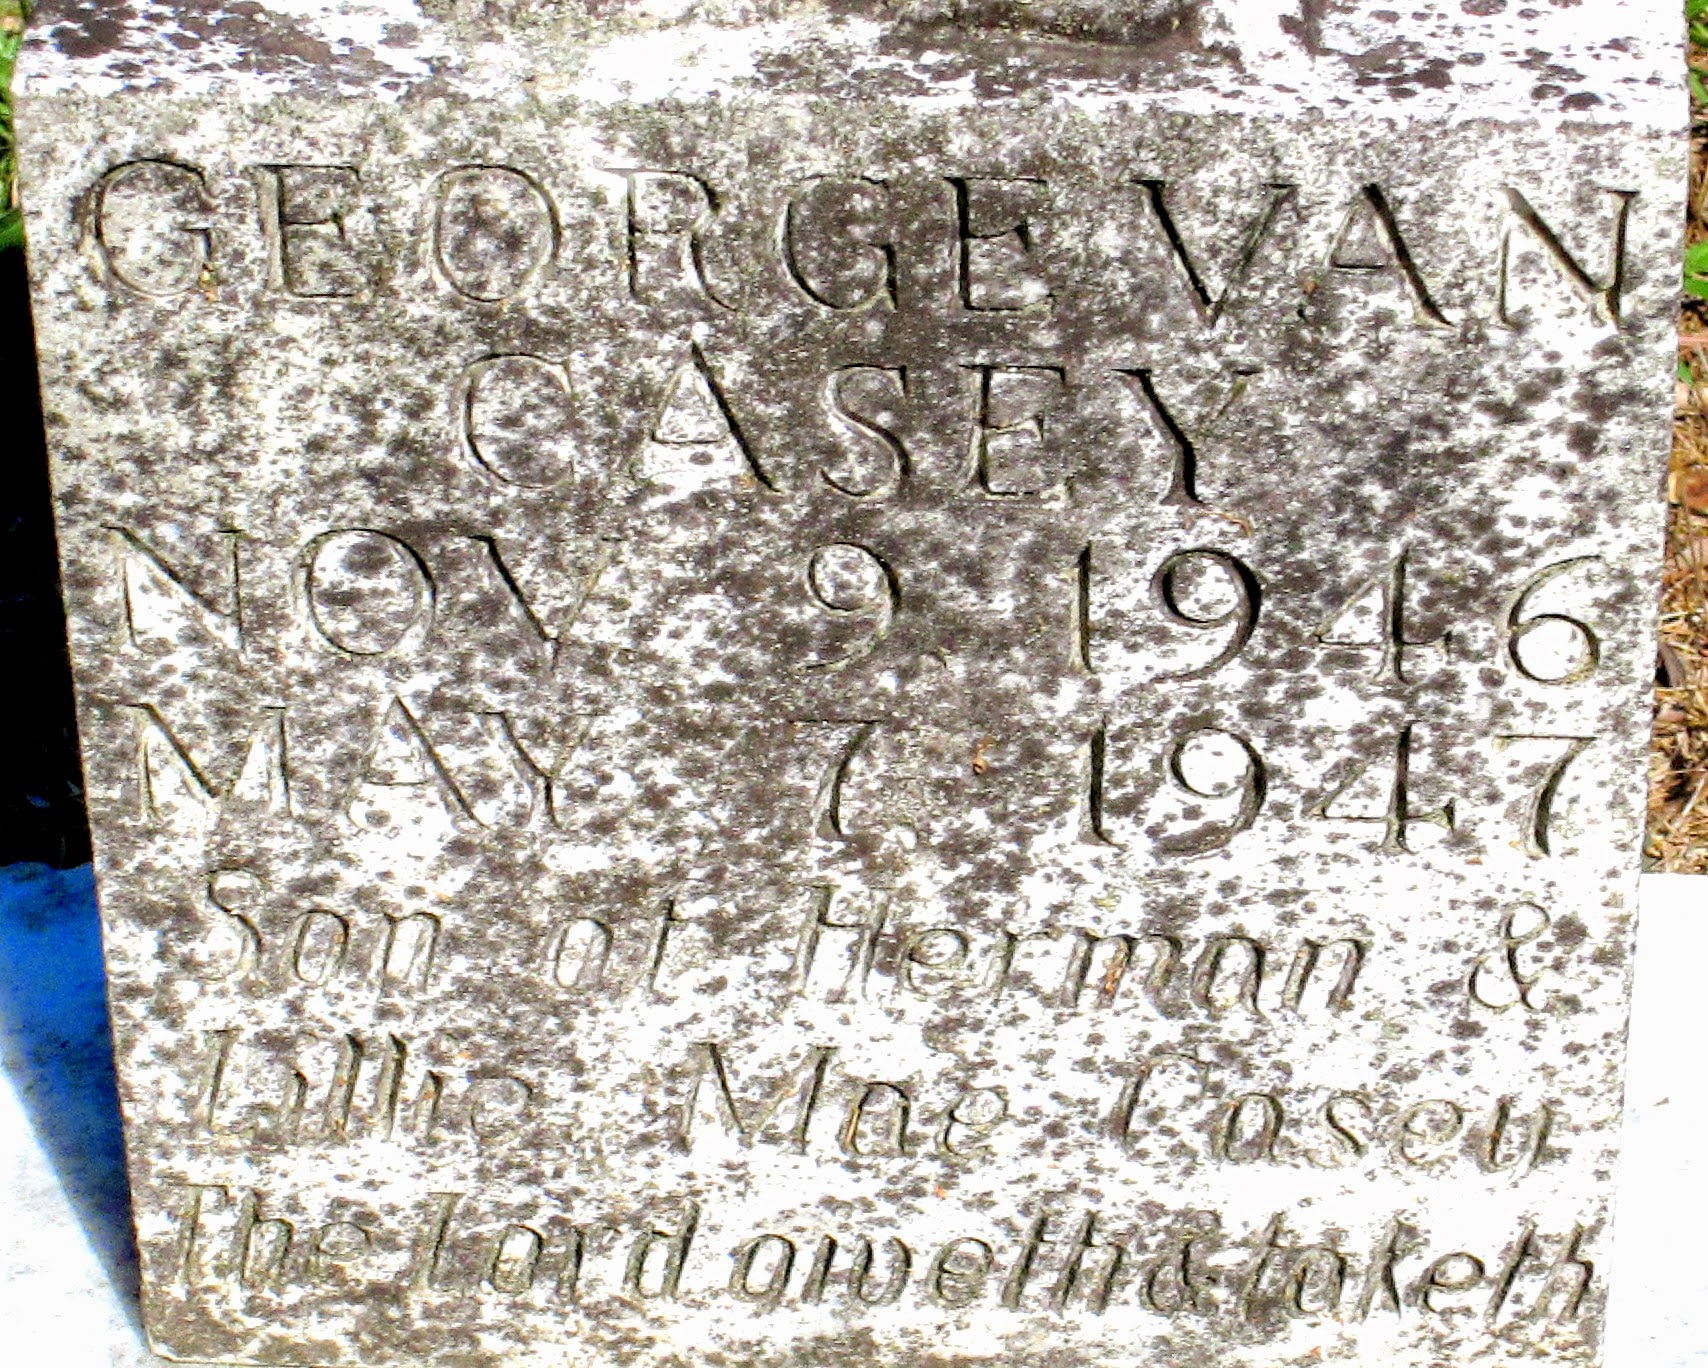 GEORGE VAN
CASEY
NOV 9, 1946
MAY 7, 1947
Son of Herman &
Lillie Mae Casey
The Lord giveth & taketh